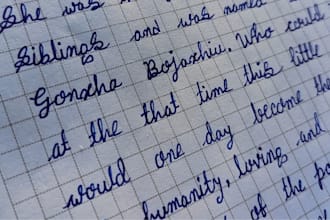 She was
siblings and was named
Gonxha Bojaxhiu. Who could
at the that time this little
would one day become the
humanity, loving and
of the po